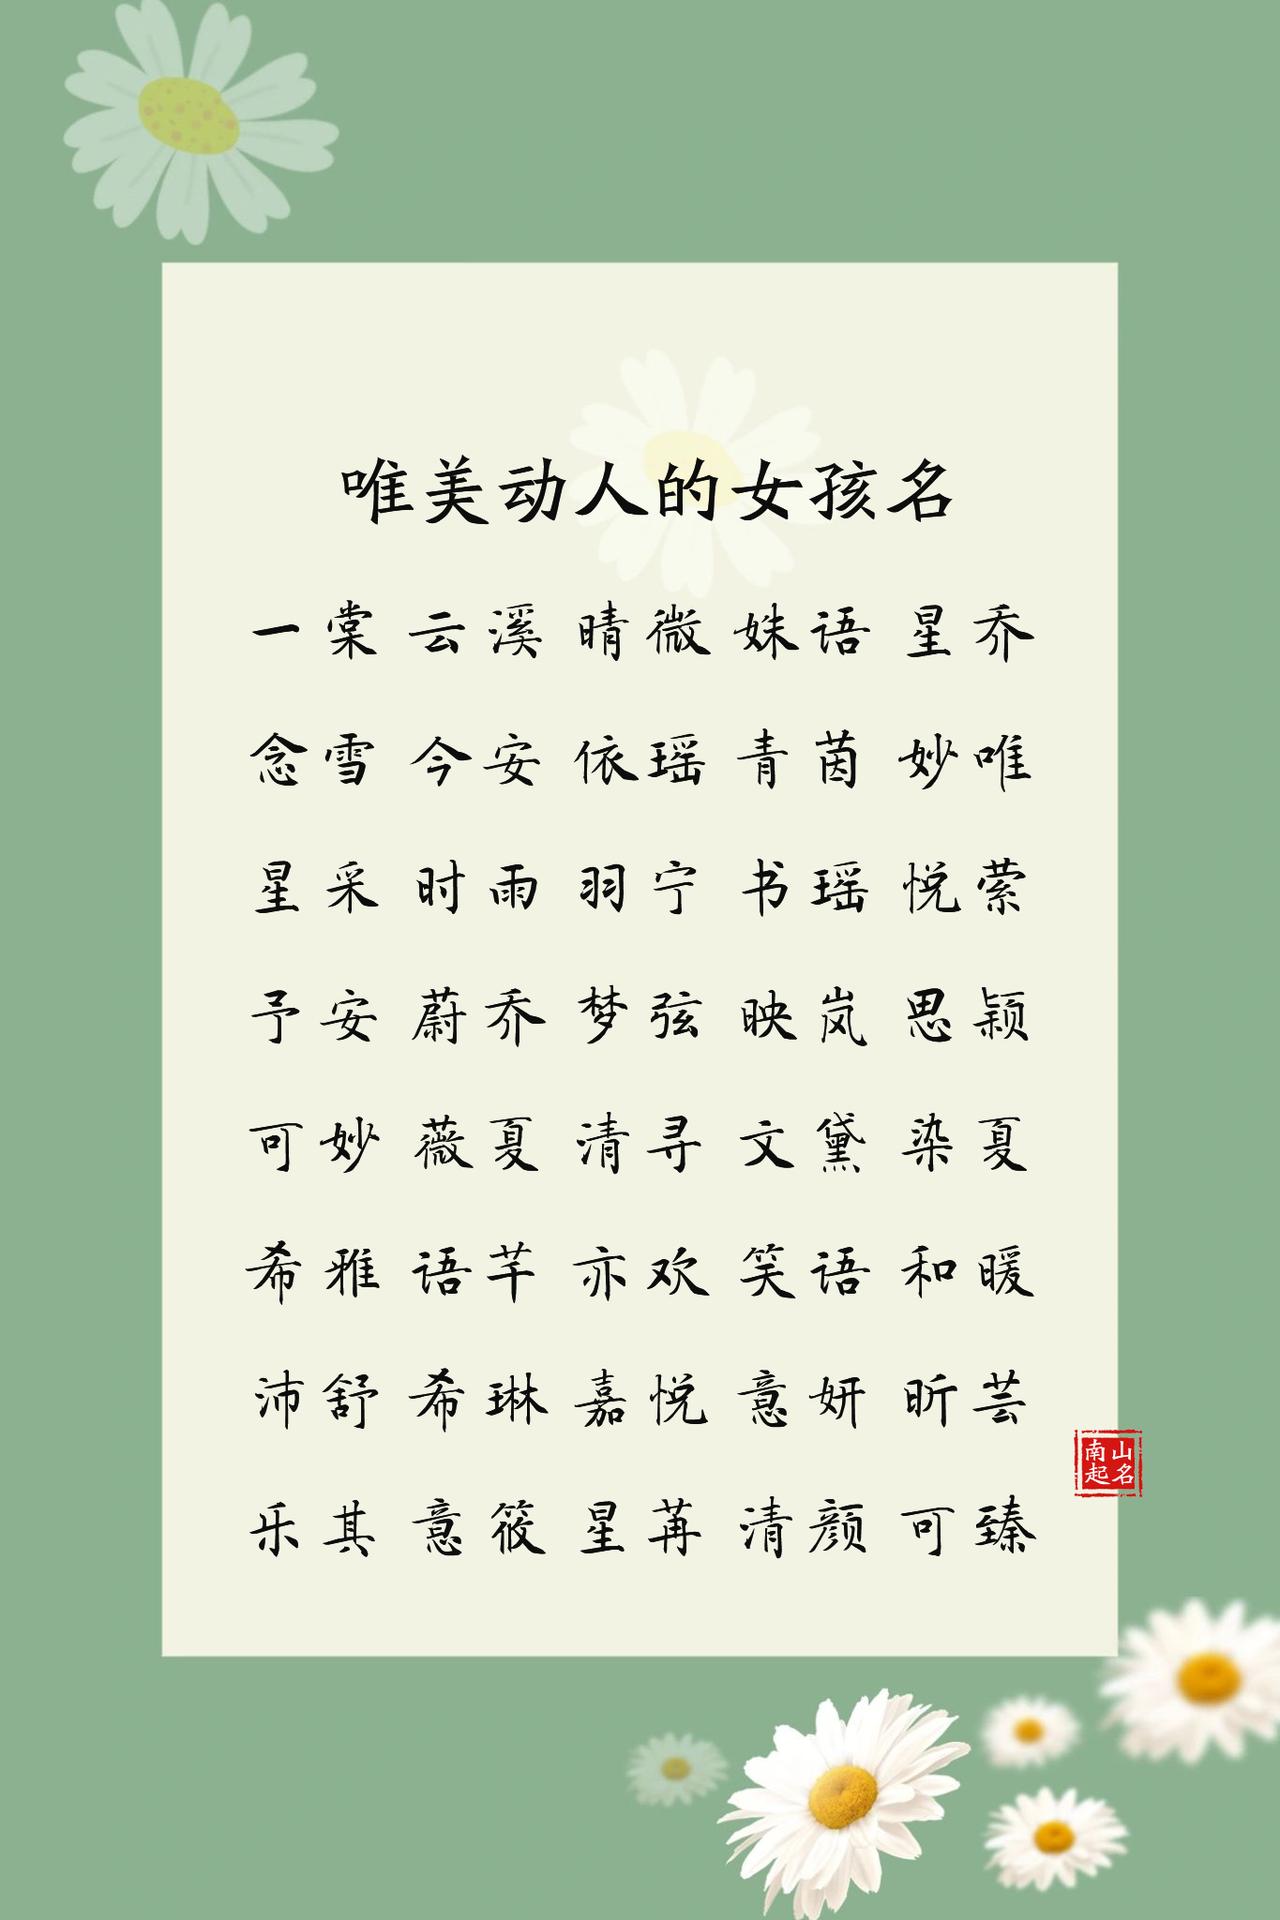 唯美动人的女孩名
一棠 云溪 晴微 姝语 星乔
念雪 今安 依瑶 青茵 妙唯
星采 时雨 羽宁 书瑶 悦萦
予安 蔚乔 梦弦 映岚 思颖
可妙 薇夏 清寻 文黛 染夏
希雅 语芊 亦欢 笑语 和暖
沛舒 希琳 嘉悦 意妍 昕芸
南山
起名
乐其 意筱 星苒 清颜 可臻